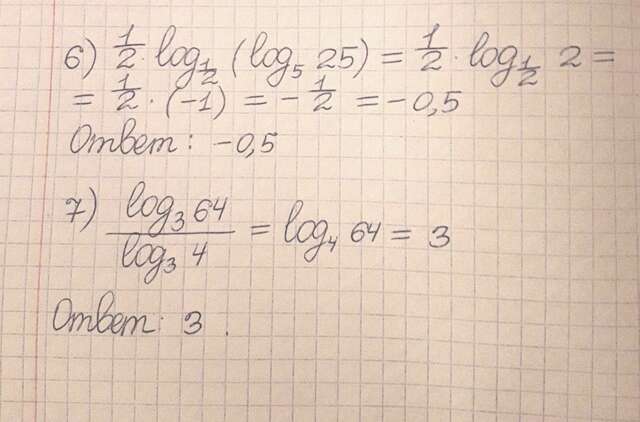 6) 1/2 · log_{1/2} (log_5 25) = 1/2 · log_{1/2} 2 =
= 1/2 · (-1) = - 1/2 = -0,5
Ответ: -0,5
7) log_3 64 / log_3 4 = log_4 64 = 3
Ответ: 3.